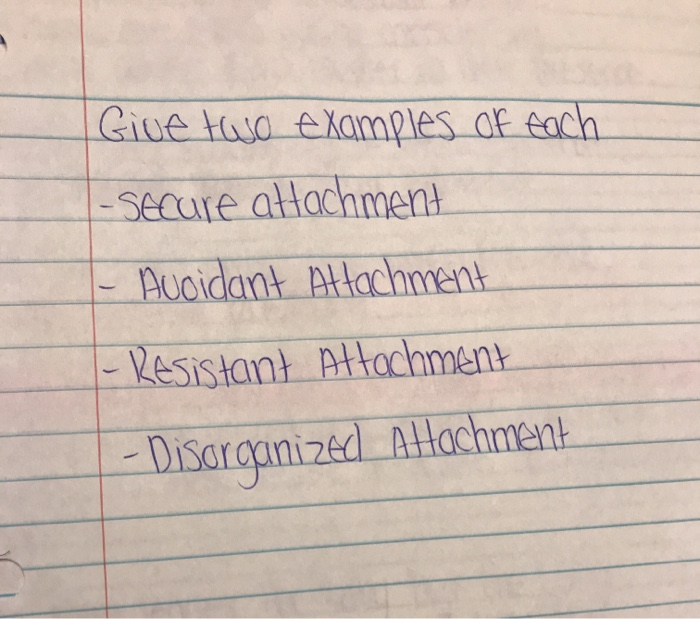 Give two examples of each
- secure attachment
- Avoidant Attachment
- Resistant Attachment
- Disorganized Attachment